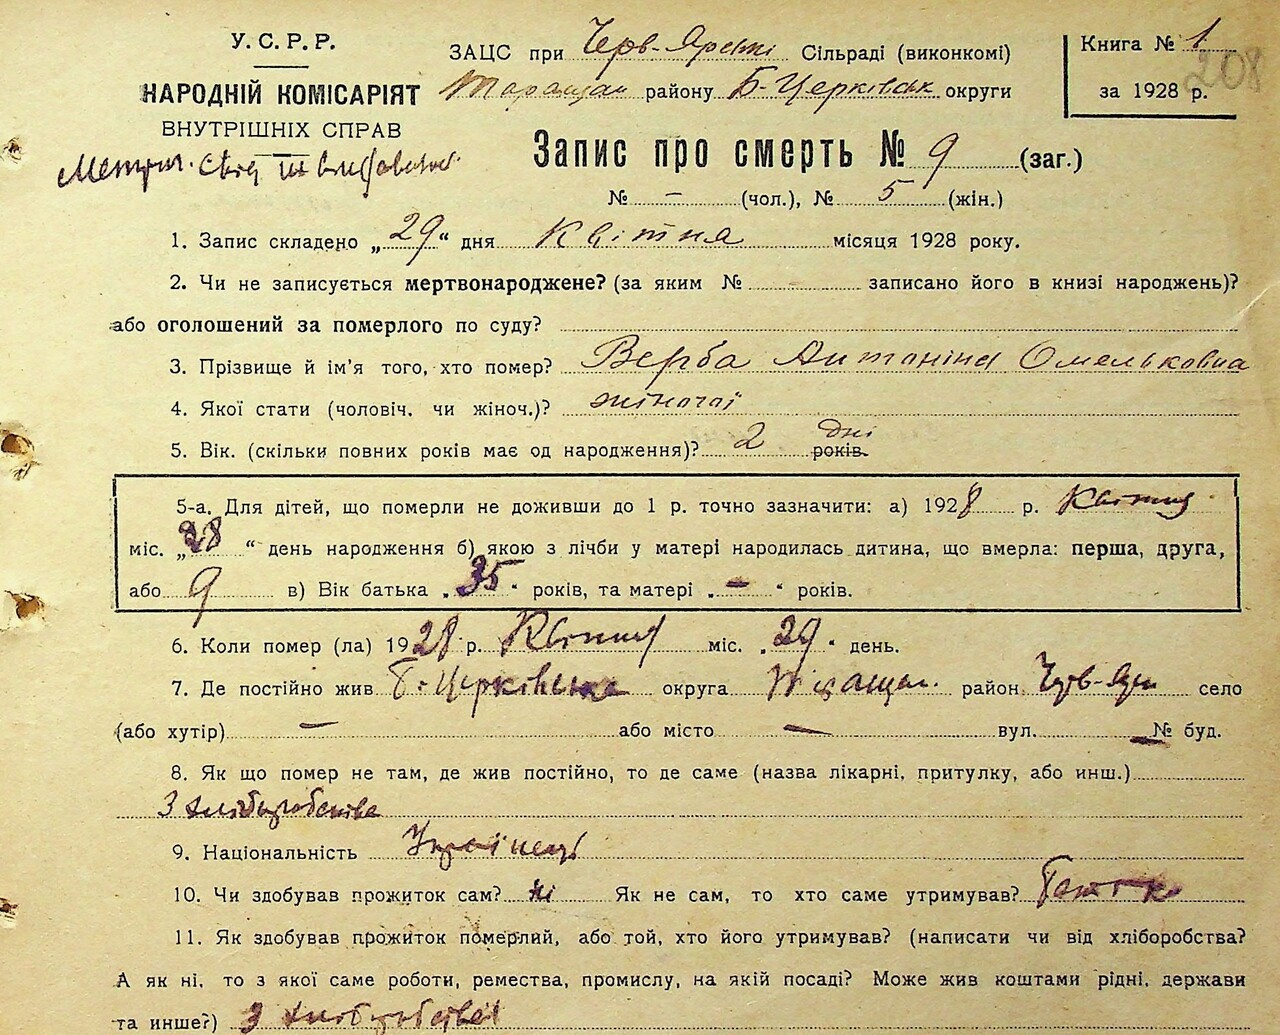 У.С.Р.Р.
НАРОДНІЙ КОМІСАРІЯТ
ВНУТРІШНІХ СПРАВ
Метрич. Свід
ЗАЦС при Черв-Ярські Сільраді (виконкомі)
Таращан району Б-Церківськ округи
Книга № 1
208
за 1928 р.
Запис про смерть № 9 (заг.)
№ – (чол.), № 5 (жін.)
1. Запис складено „29“ дня Квітня місяця 1928 року.
2. Чи не записується мертвонароджене? (за яким № – записано його в книзі народжень)?
або оголошений за померлого по суду?
3. Прізвище й ім'я того, хто помер? Верба Антаніна Омельковна
4. Якої стати (чоловіч. чи жіноч.)? жіночої
5. Вік. (скільки повних років має од народження)? 2 дні років.
5-а. Для дітей, що померли не доживши до 1 р. точно зазначити: а) 1928 р. Квітня
міс. „28“ день народження б) якою з лічби у матері народилась дитина, що вмерла: перша, друга,
або 9 в) Вік батька „35“ років, та матері „–“ років.
6. Коли помер (ла) 1928 р. Квітня міс. „29“ день.
7. Де постійно жив Б-Церківська округа Таращан. район Черв-Яри село
(або хутір) – або місто – вул. – № буд.
8. Як що помер не там, де жив постійно, то де саме (назва лікарні, притулку, або инш.)
З хліборобства
9. Національність Українець
10. Чи здобував прожиток сам? ні Як не сам, то хто саме утримував? Батько
11. Як здобував прожиток померлий, або той, хто його утримував? (написати чи від хліборобства?
А як ні, то з якої саме роботи, ремества, промислу, на якій посаді? Може жив коштами рідні, держави
та инше?) З хліборобства